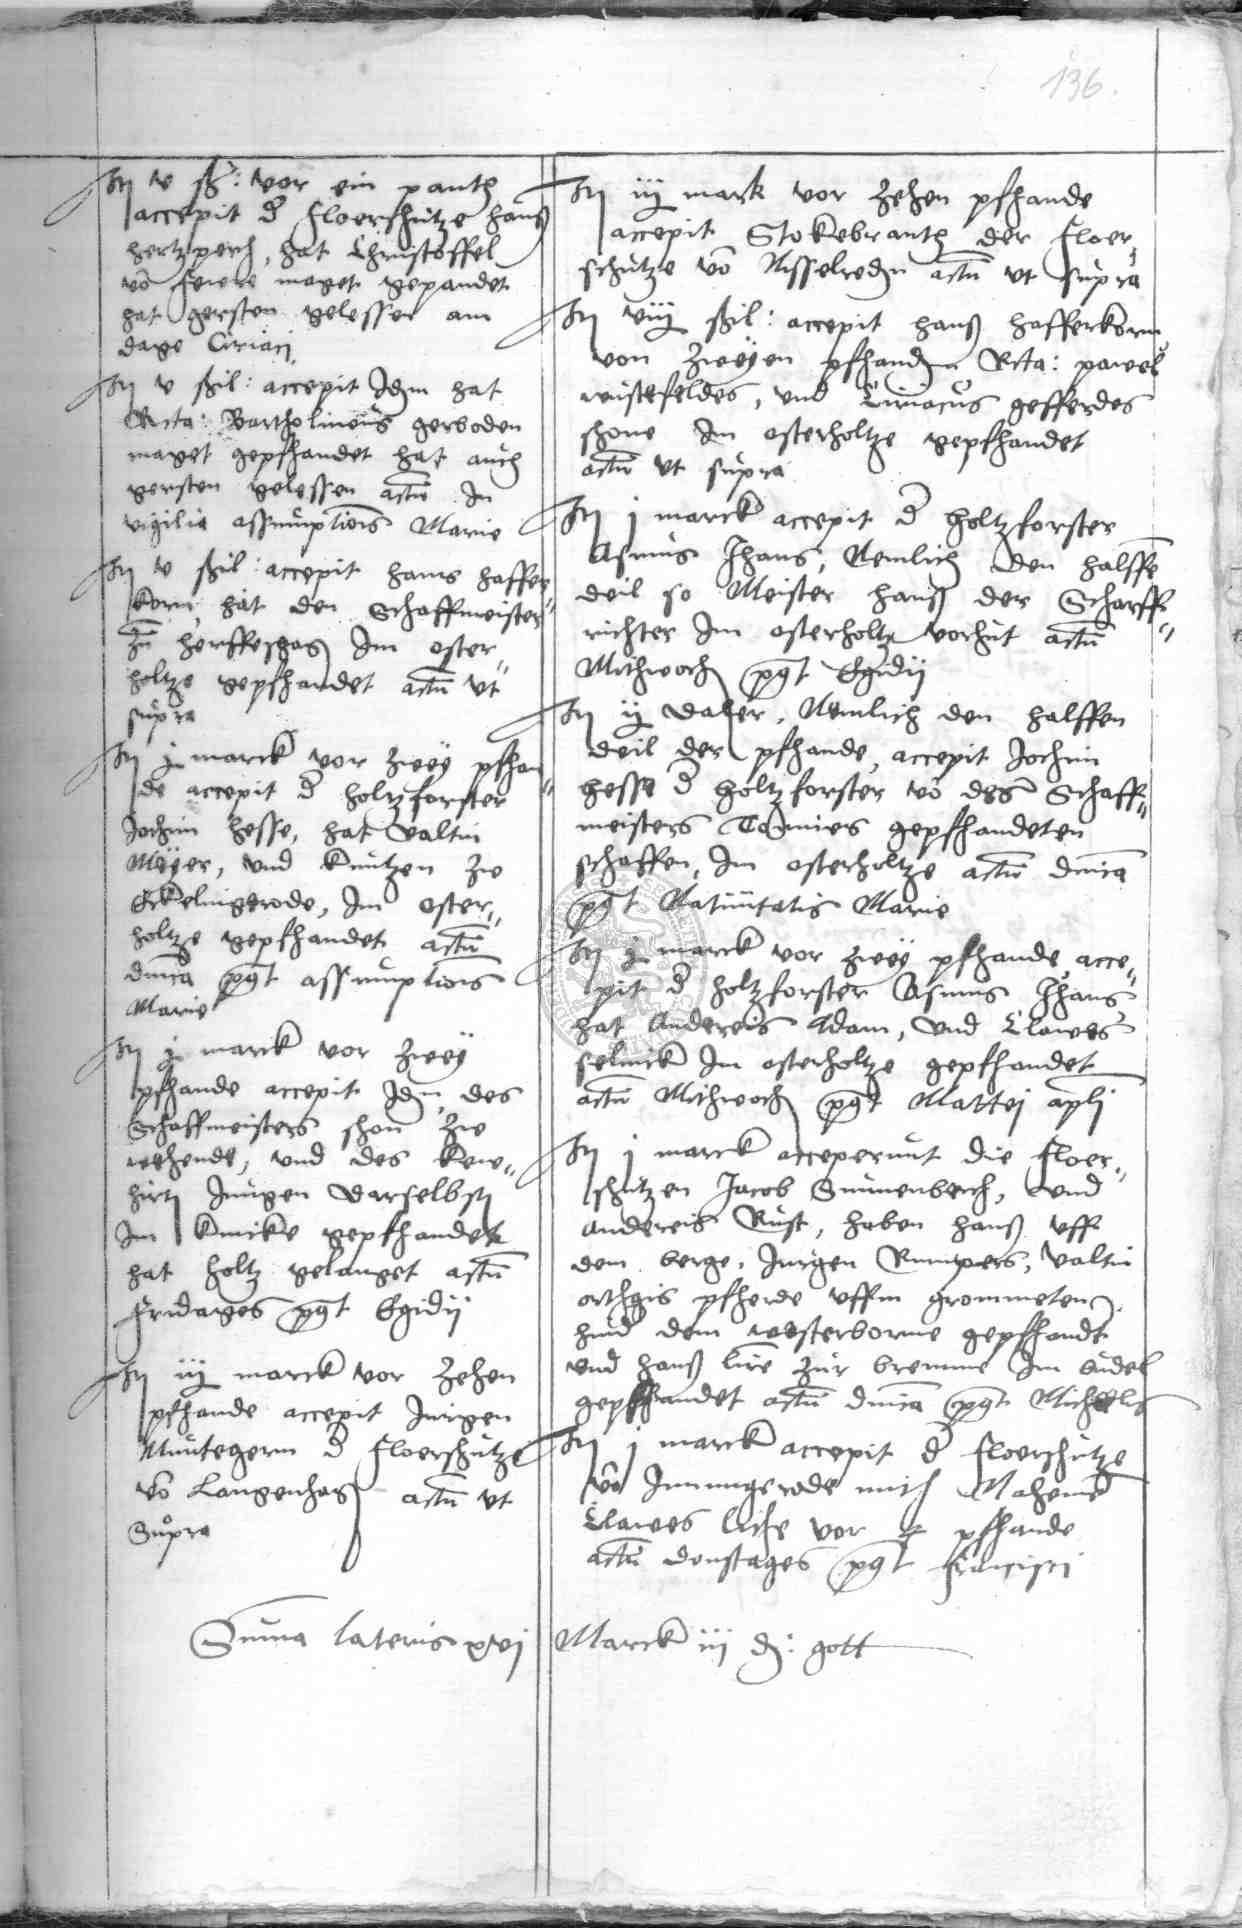 136.
It v ß: vor ein panth
accepit d Floerschutze hanß
hertzperch, hat Christoffel
vō maget gepandet
hat gersten gelessen am
dage Ciriaci
It v ßil: accepit Idm hat
Rcta: Bartholineus gerboden
maget gepfhandet hat auch
gersten gelessen actū In
vigilia assumptiōis Marie
It v ßil: accepit hans haffer„
korn, hat den Schaffmeister
zū herffeshag Im oster„
holtze gepfhandet actū vt
supra
It j marck vor zweÿ pfhan„
de accepit d holtzforster
Jochim hesse, hat Valtin
Meÿer, vnd kuntzen zw
Eckelingerode, Im oster„
holtze gepfhandet actū
dnica pōst assumptiōis
Marie
It j marck vor zweÿ
pfhande accepit Idm, des
Schaffmeisters shon zw
wehende, vnd des kuw„
hirtn Jungen darselbst
Im knicke gepfhandet
hat holtz gelanget actū
Fridages pōst Egidij
It iij marck vor zehen
pfhande accepit Jurgen
Muntegern d Floerschutze
vō Langenhag actū vt
Supra
It iij mark vor zehen pfhande
accepit Stokebranth der Floer„
schutze vō Nesselredn actū vt supra
It viij ßil: accepit hanß hafferkorn
von zweÿen pfhandn Rcta: pawel
wustefeldes, vnd Ciriacus gefferdes
shone Im osterholtze gepfhandet
actū vt supra
It j marck accepit d holtzforster
Asmus Jhans, Nemlich den halffē
deil so Meister hanß der Scharff„
richter Im osterholtz vorhut actū
Mithwoch pōst Egidij
It ij daler, Nemlich den halffen
deil der pfhande, accepit Jochim
hesse d holtzforster vō des Schaff„
meisters Tonnies gepfhandeten
schaffen, Im osterholtze actū dnica
pōst Natiuitatis Marie
It j marck vor zweÿ pfhande acce„
pit d holtzforster Asmus Jhans
hat Andereis Adam, vnd Clawes
selmick Im osterholtze gepfhandet
actū Mithwoch pōst Mattej apli
It j marck acceperunt die Floer„
schutzen Jacob Sunnenberch, vnd
Andereis Rust, haben hanß vff
dem berge, Jurgen Rumpers, Valtin
orthgis pfherde vffm grommeten
hind dem westerborne gepfhandt
vnd hanß zur bremme Im budel
gepfhandet actū dnica pōst Michaelis
It j marck accepit d Floerschutze
vō Immingerode mith Nahemē
Clawes vor pfhande
actū donstages pōst Francisci
Suma lateris xvj Marck iij d: gott